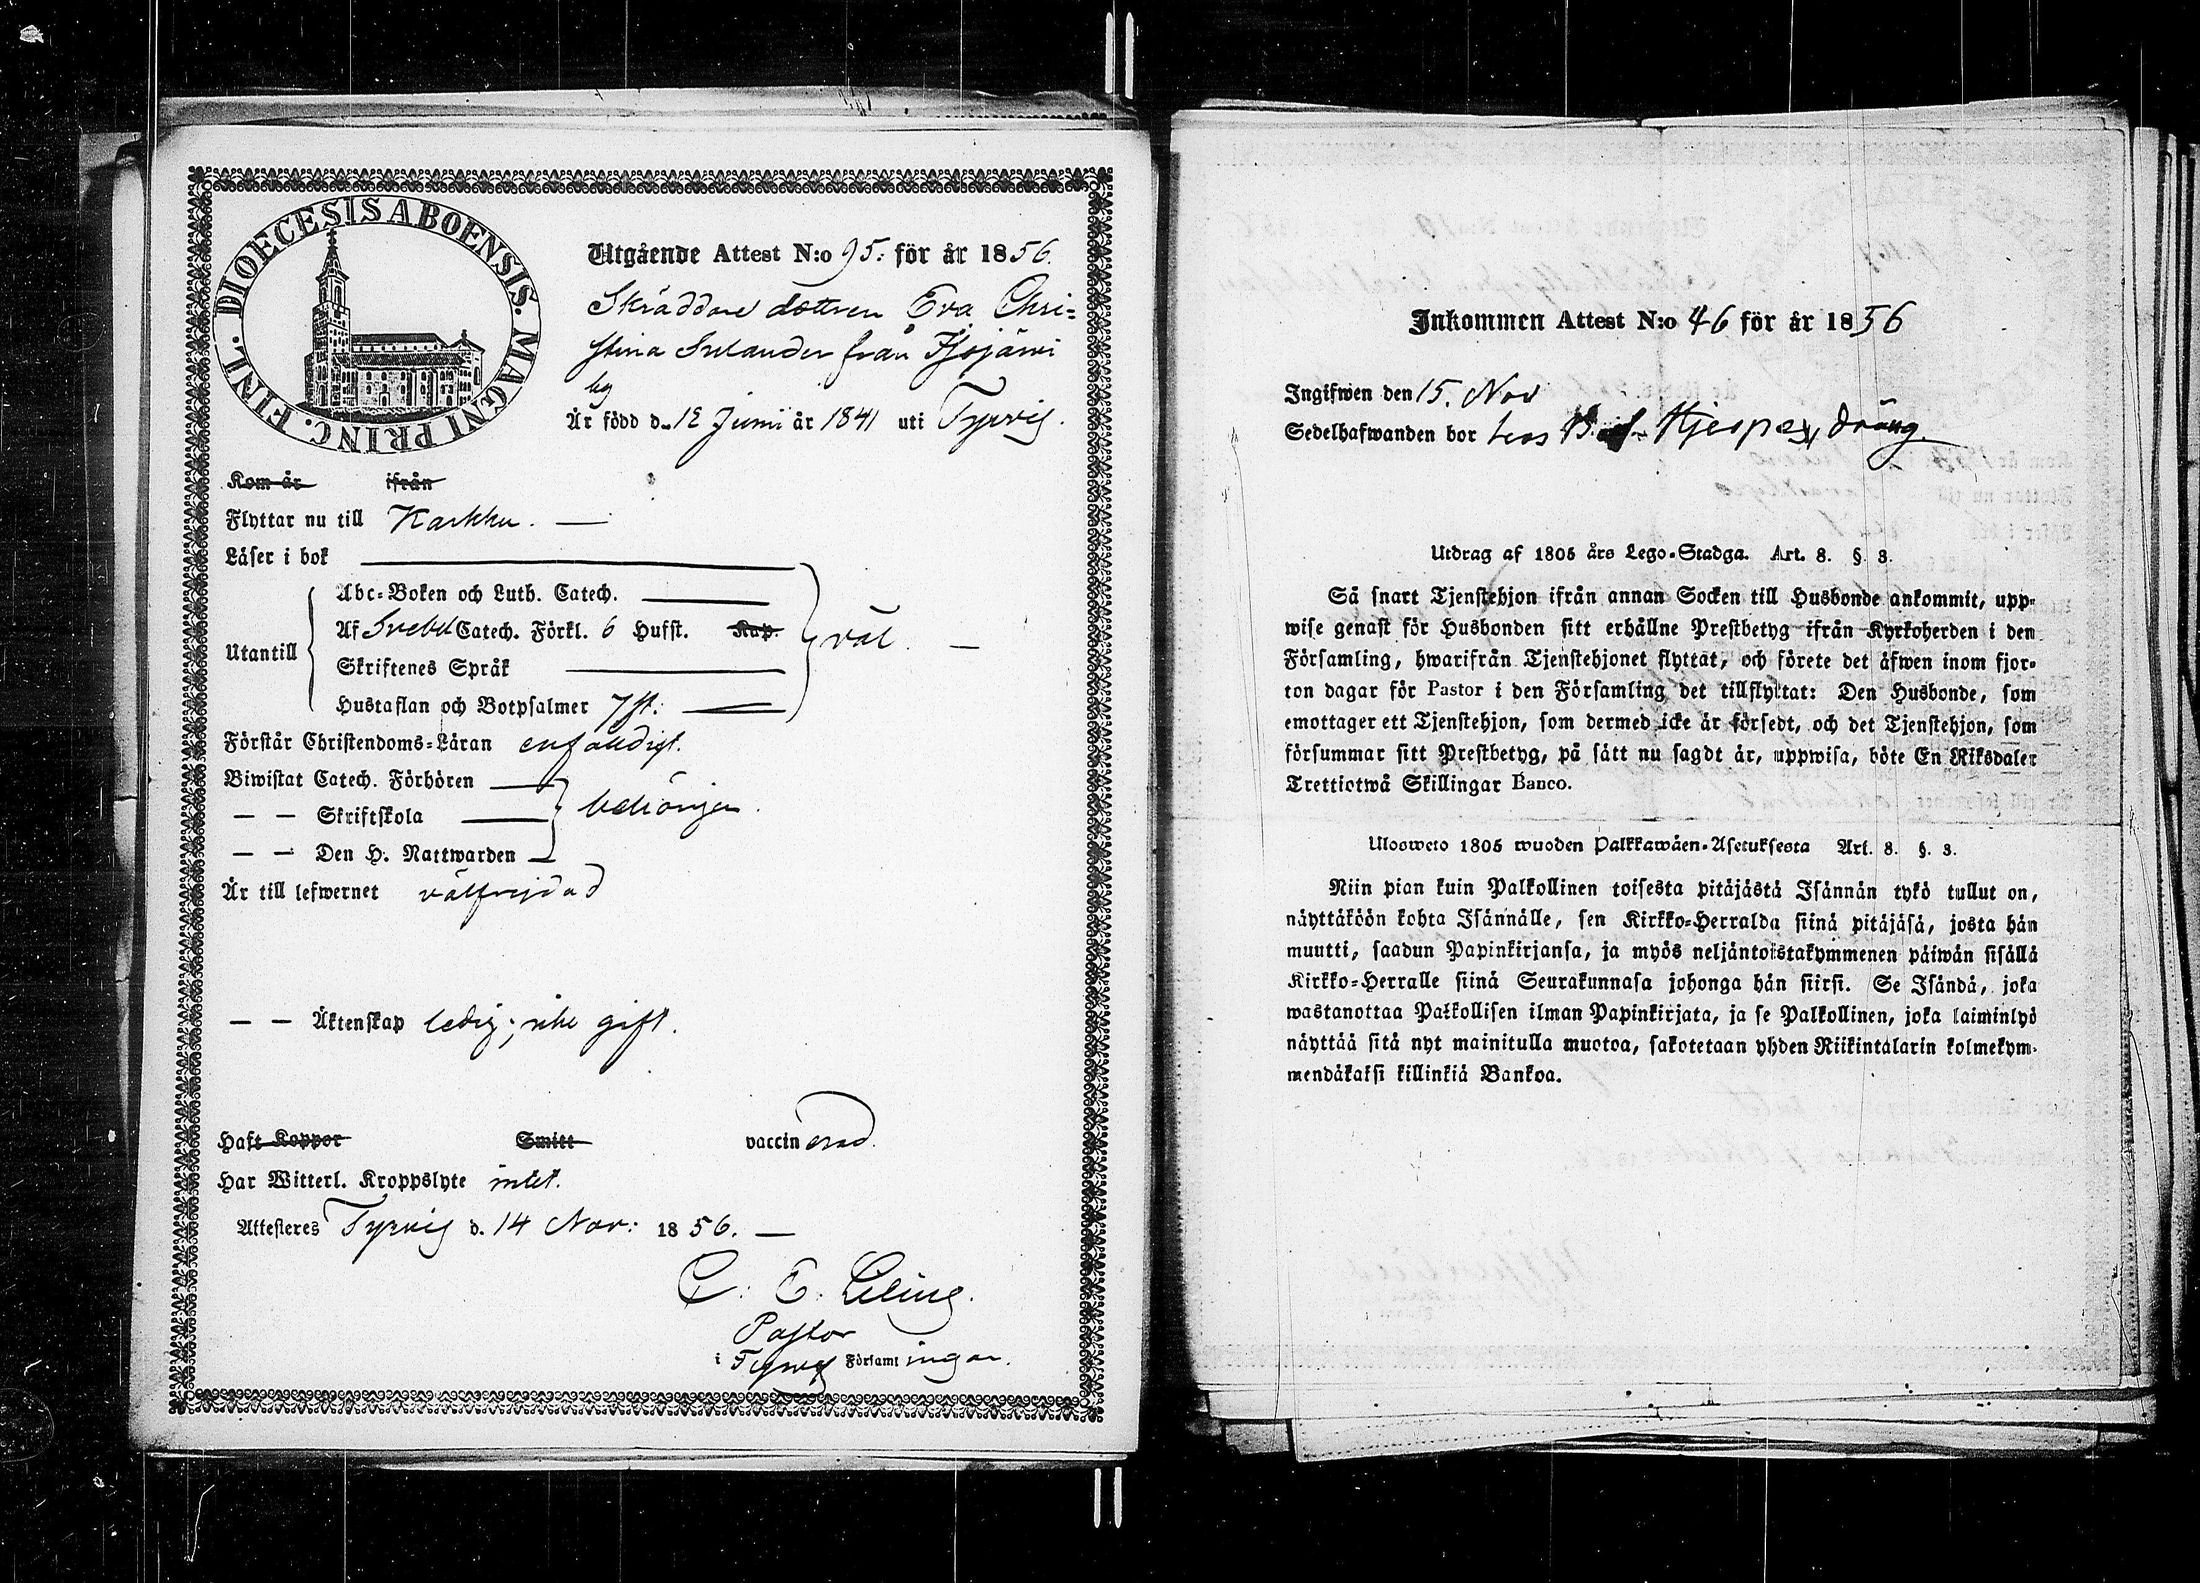 DIOECESIS ABOENSIS. MAGNI PRINC. FINL.
Utgående Attest N:o 95. för år 1856.
Skräddare dottren Eva Chri=
stina Sulander från
by
Är född d. 12 Juni år 1841 uti Tyrvis.
Kom år ifrån
Flyttar nu till Karkku. —
Läser i bok
Abc-Boken och Luth. Catech.
Af Svebel Catech. Förkl. 6 Hufst. Kap.
väl. —
Utantill
Skriftenes Språk
Hustaflan och Botpsalmer 7 st:
Förstår Christendoms-Läran enfaldigt.
Biwistat Catech. Förhören
— — Skriftskola
behörigen.
— — Den H. Nattwarden
Är till lefwernet välfrejdad
— — Äktenskap ledig; icke gift.
Haft Koppor Smitt vaccinerad.
Har Witterl. Kroppslyte intet.
Attesteres Tyrvis d. 14 Nov: 1856. —
C. E.
Pastor
i Tyrvis Församlingar.
Inkommen Attest N:o 46 för år 1856
Ingifwen den 15. Nov
Sedelhafwanden bor hos dräng.
Utdrag af 1805 års Lego-Stadga. Art. 8. §. 3.
Så snart Tjenstehjon ifrån annan Socken till Husbonde ankommit, upp-
wise genast för Husbonden sitt erhållne Prestbetyg ifrån Kyrkoherden i den
Församling, hwarifrån Tjenstehjonet flyttat, och förete det äfwen inom fjor-
ton dagar för Pastor i den Församling det tillflyttat: Den Husbonde, som
emottager ett Tjenstehjon, som dermed icke är försedt, och det Tjenstehjon, som
försummar sitt Prestbetyg, på sätt nu sagdt är, uppwisa, böte En Riksdaler
Trettiotwå Skillingar Banco.
Ulosweto 1805 wuoden Palkkawäen-Asetuksesta Art. 8. §. 3.
Niin pian kuin Palkollinen toisesta pitäjästä Isännän tykö tullut on,
näyttäköön kohta Isännälle, sen Kirkko-Herralda siinä pitäjäsä, josta hän
muutti, saadun Papinkirjansa, ja myös neljäntoistakymmenen päiwän sisällä
Kirkko-Herralle siinä Seurakunnasa johonga hän siirsi. Se Isändä, joka
wastanottaa Palkollisen ilman Papinkirjata, ja se Palkollinen, joka laiminlyö
näyttää sitä nyt mainitulla muotoa, sakotetaan yhden Riikintalarin kolmekym-
mendäkaksi killinkiä Bankoa.